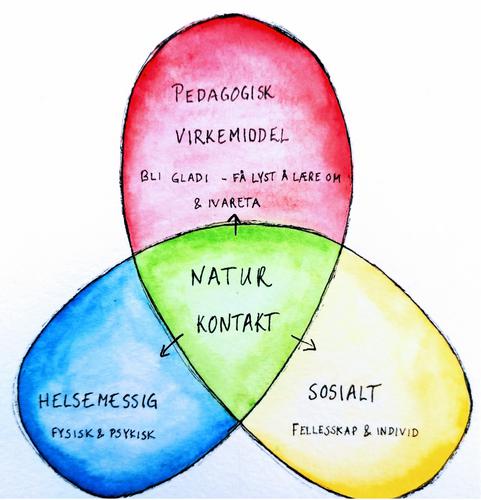 PEDAGOGISK
VIRKEMIDDEL
BLI GLAD I - FÅ LYST Å LÆRE OM
& IVARETA
NATUR
KONTAKT
HELSEMESSIG
FYSISK & PSYKISK
SOSIALT
FELLESSKAP & INDIVID